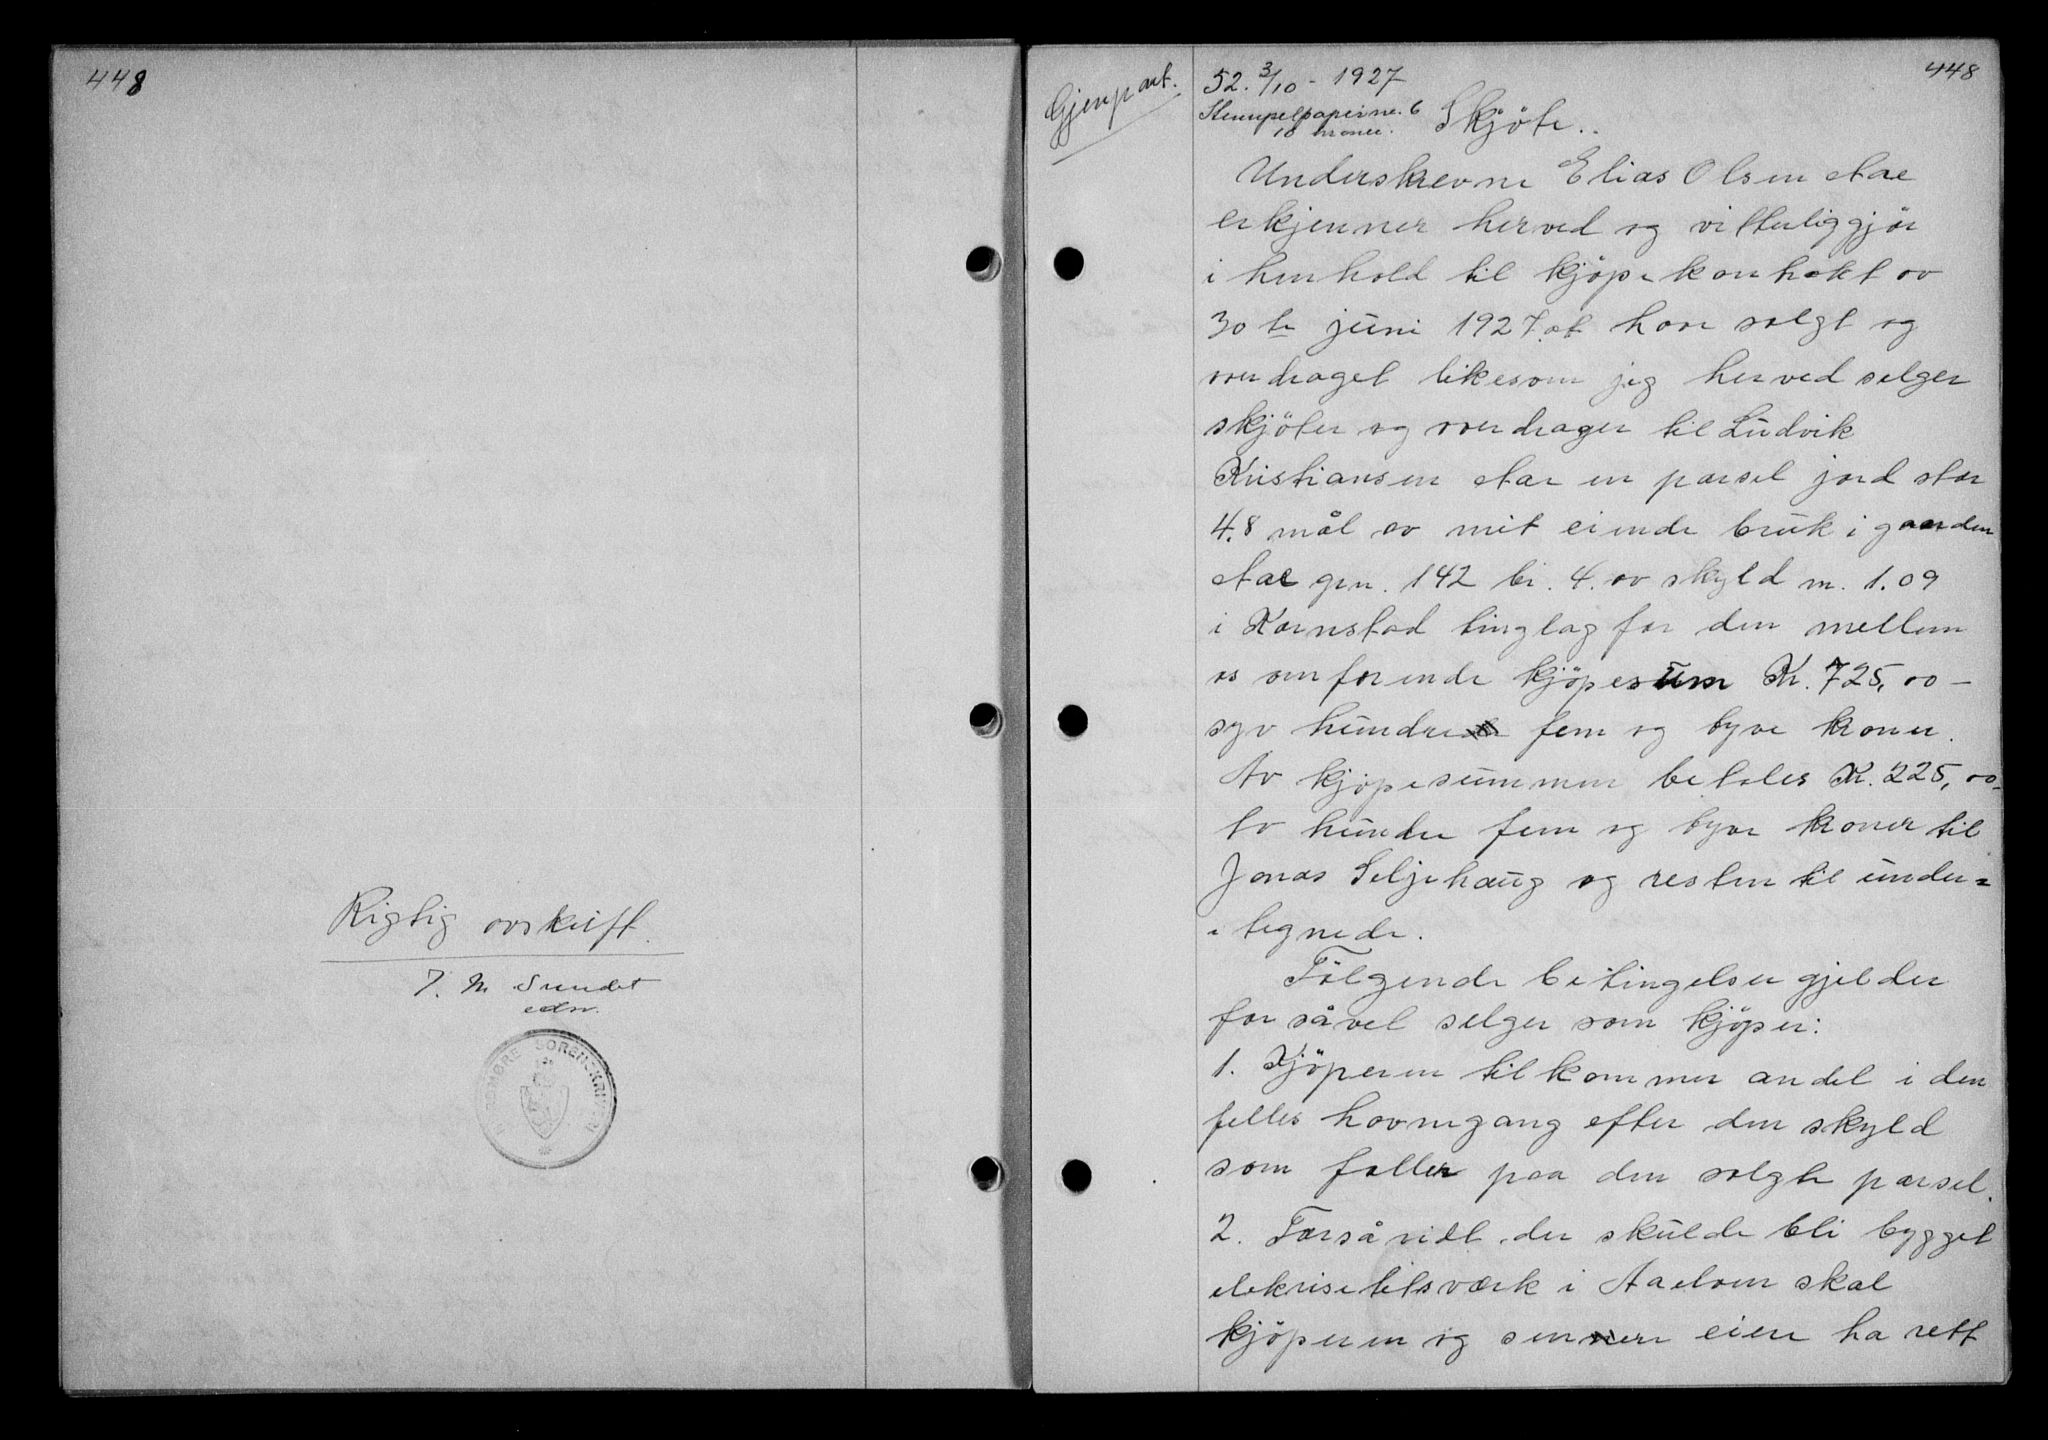 448
Rigtig avskrift.
J. M. Sundet
edsv.
NORDMØRE SORENSKRIVERI
448
Gjenpart.
52. 3/10 - 1927
Stempelpapir no. 6
10 kroner.
Skjöte.
Underskrevne Elias Olsen
erkjenner herved og vitterliggjør
i henhold til kjöpekontrakt av
30te juni 1927 at have solgt og
overdraget likesom jeg herved selger
skjöter og overdrager til Ludvik
Kristiansen en parsel jord stor
4.8 mål av mit eiende bruk i gaarden
gnr. 142 br. 4. av skyld m. 1.09
i Kornstad tinglag for den mellem
os omforende kjöpesum Kr. 725,00 -
syv hundre fem og tyve kroner.
Av kjöpesummen betales Kr. 225,00-
to hundre fem og tyve kroner til
Jonas Seljehaug og resten til under=
tegnede.
Følgende betingelser gjelder
for såvel selger som kjöper:
1. Kjöperen tilkommer andel i den
felles havnegang efter den skyld
som faller paa den solgte parsel.
2. Forsåvidt der skulde bli bygget
elekrisetetsværk i Aaelven skal
kjöperen og sennere eiere ha rett